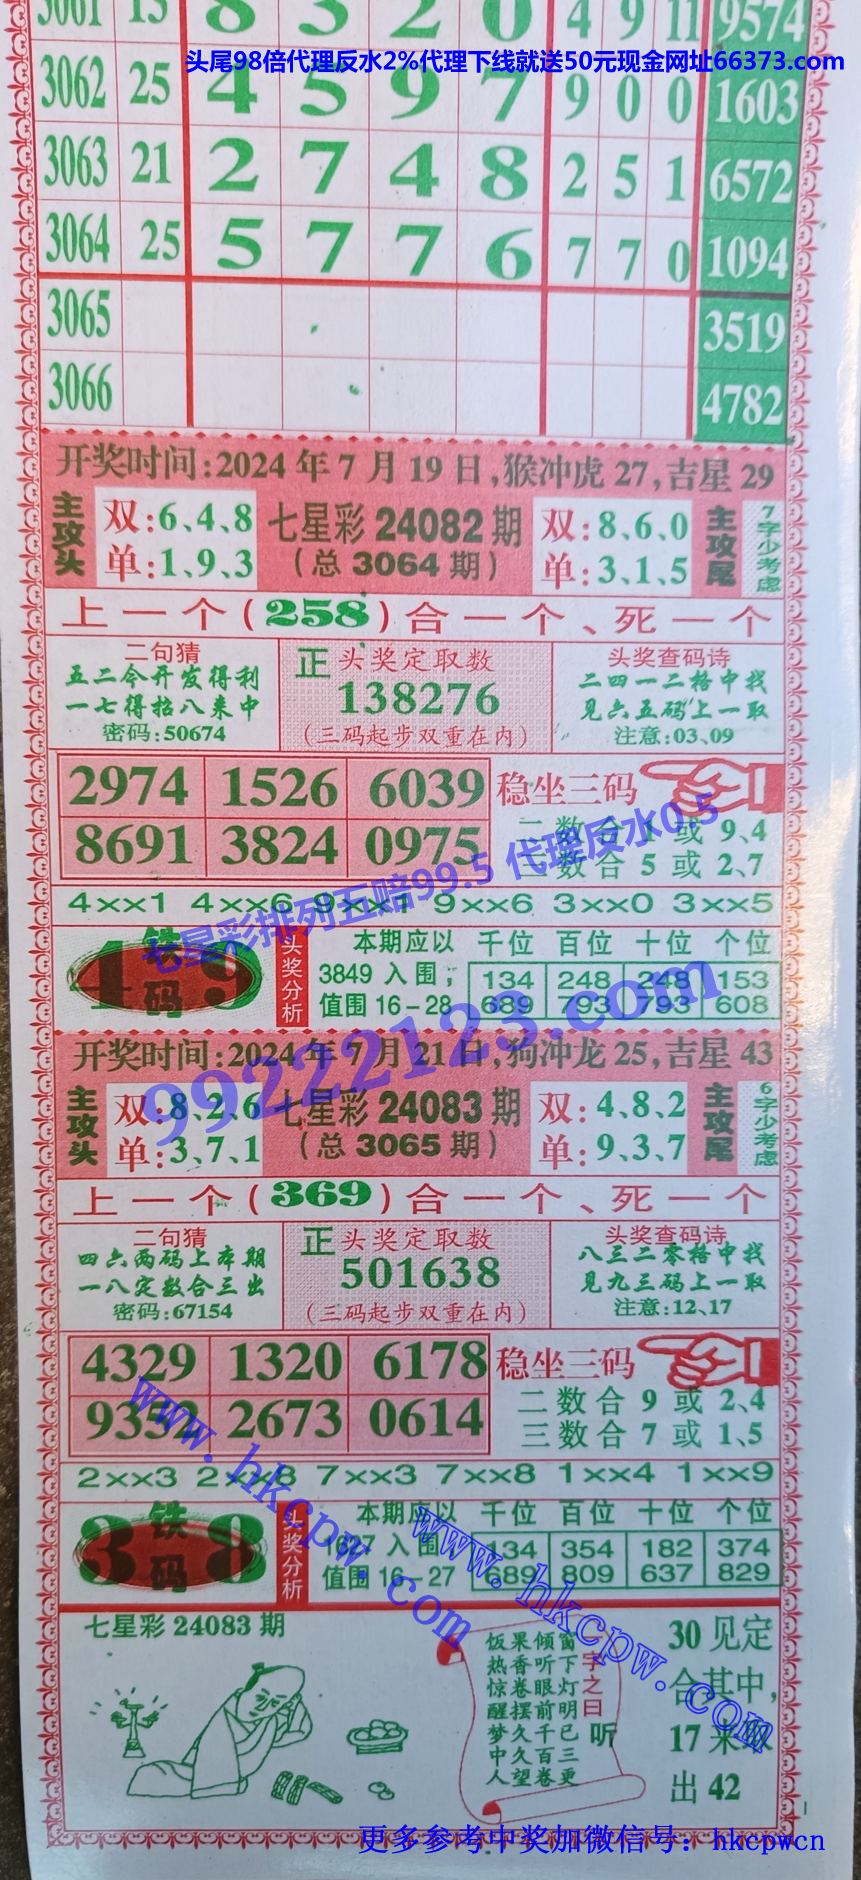 3061 15 8 3 2 0 4 9 11 9574
头尾98倍代理反水2%代理下线就送50元现金网址66373.com
3062 25 4 5 9 7 9 0 0 1603
3063 21 2 7 4 8 2 5 1 6572
3064 25 5 7 7 6 7 7 0 1094
3065 3519
3066 4782
开奖时间:2024年7月19日,猴冲虎27,吉星29
主攻头
双:6、4、8
单:1、9、3
七星彩24082期
(总3064期)
双:8、6、0
单:3、1、5
主攻尾
7字少考虑
上一个(258)合一个、死一个
二句猜
五二今开发得利
一七得招八来中
密码:50674
正 头奖定取数
138276
(三码起步双重在内)
头奖查码诗
二四一二格中找
见六五码上一取
注意:03、09
2974 1526 6039
8691 3824 0975
稳坐三码
二数合1或9、4
三数合5或2、7
4××1 4××6 9××1 9××6 3××0 3××5
七星彩排列五赔99.5 代理反水0.5
4 铁码 9
头奖分析
本期应以 千位 百位 十位 个位
3849入围; 134 248 248 153
值围16-28 689 793 793 608
99222123.com
开奖时间:2024年7月21日,狗冲龙25,吉星43
主攻头
双:8、2、6
单:3、7、1
七星彩24083期
(总3065期)
双:4、8、2
单:9、3、7
主攻尾
6字少考虑
上一个(369)合一个、死一个
二句猜
四六两码上本期
一八定数合三出
密码:67154
正 头奖定取数
501638
(三码起步双重在内)
头奖查码诗
八三二零格中找
见九三码上一取
注意:12、17
4329 1320 6178
9352 2673 0614
稳坐三码
二数合9或2、4
三数合7或1、5
2××3 2××8 7××3 7××8 1××4 1××9
www.hkcpw.com
3 铁码 8
头奖分析
本期应以 千位 百位 十位 个位
1627入围 134 354 182 374
值围16-27 689 809 637 829
www.hkcpw.com
七星彩24083期
一字之曰
听
窗下灯明已三更
倾听眼前千百卷
果香卷摆久久望
饭热惊醒梦中人
30见定
合其中,
17来取
出42
更多参考中奖加微信号：hkcpwcn